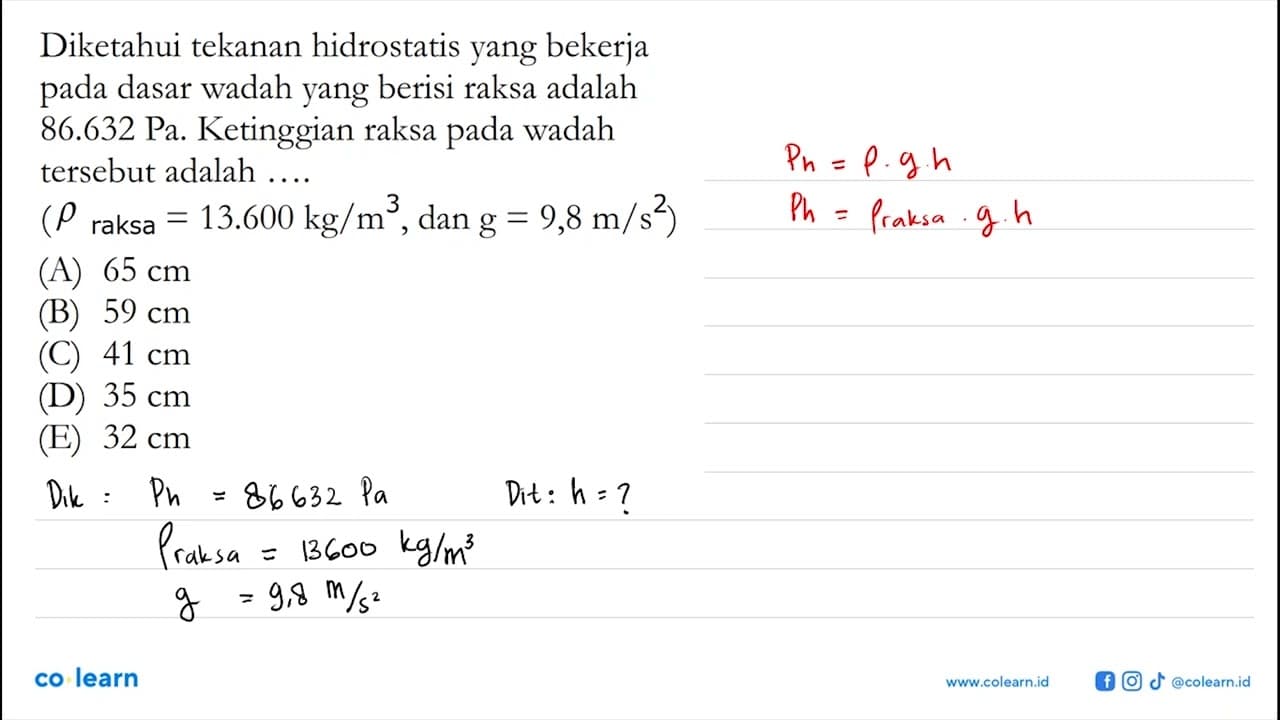 Diketahui tekanan hidrostatis yang bekerja
pada dasar wadah yang berisi raksa adalah
86.632 Pa. Ketinggian raksa pada wadah
tersebut adalah ....
(ρ raksa = 13.600 kg/m³, dan g = 9,8 m/s²)
(A) 65 cm
(B) 59 cm
(C) 41 cm
(D) 35 cm
(E) 32 cm
Dik : Ph = 86632 Pa Dit : h = ?
ρraksa = 13600 kg/m³
g = 9,8 m/s²
Ph = ρ . g . h
Ph = ρraksa . g . h
co learn
www.colearn.id
@colearn.id